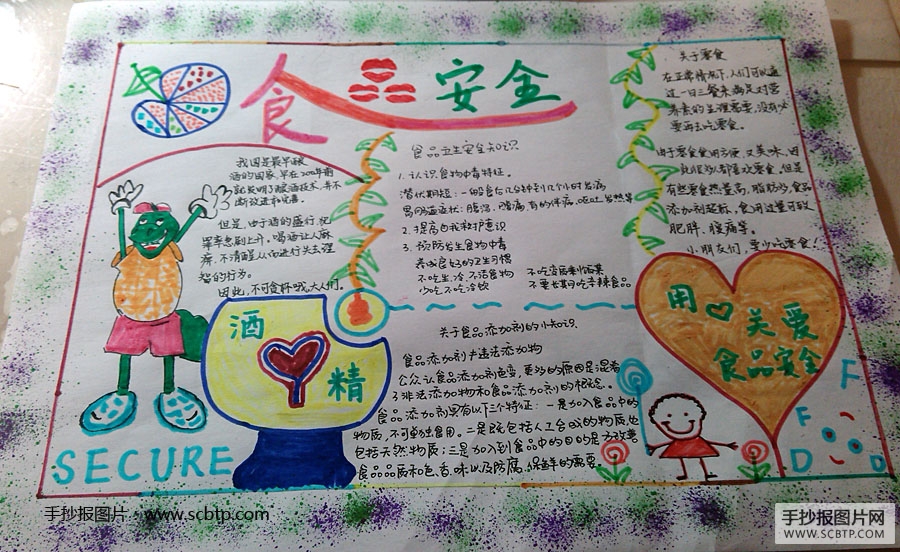 食品安全
我国是最早酿
酒的国家,早在2000年前
就发明了酿酒技术,并不
断改进和完善。
但是,由于酒的盛行,犯
罪率急剧上升。喝酒让人麻
痹,不清醒,从而进行失去理
智的行为。
因此,不可贪杯哦,大人们。
食品卫生安全知识
1.认识食物中毒特征。
潜伏期短:一般食后几分钟到几个小时发病
胃肠道症状:腹泻、腹痛,有的伴有呕吐、发热等
2.提高自我救护意识
3.预防发生食物中毒
养成良好的卫生习惯
不吃生、冷、不洁食物
少吃、不吃冷饮
不吃变质剩饭菜
不要长期吃辛辣食品
关于零食
在正常情况下,人们可以通
过一日三餐来满足对营
养素的生理需要,没有必
要再去吃零食。
由于零食食用方便,又美味,因
此很多人都喜欢零食,但是
有些零食热量高,脂肪多,食品
添加剂超标,食用过量可致
肥胖、腹痛等。
小朋友们,要少吃零食!
关于食品添加剂的小知识
食品添加剂≠违法添加物
公众认食品添加剂色变,更多的原因是混淆
了非法添加物和食品添加剂的概念。
食品添加剂具有以下三个特征:一是加入食品中的
物质,不可单独食用。二是既包括人工合成的物质,也
包括天然物质;三是加入到食品中的目的是为改善
食品品质和色、香、味以及防腐、保鲜的需要。
酒
精
用心关爱
食品安全
SECURE
F
F
D
D
手抄报图片:www.scbtp.com
手抄报图片网
WWW.SCBTP.COM